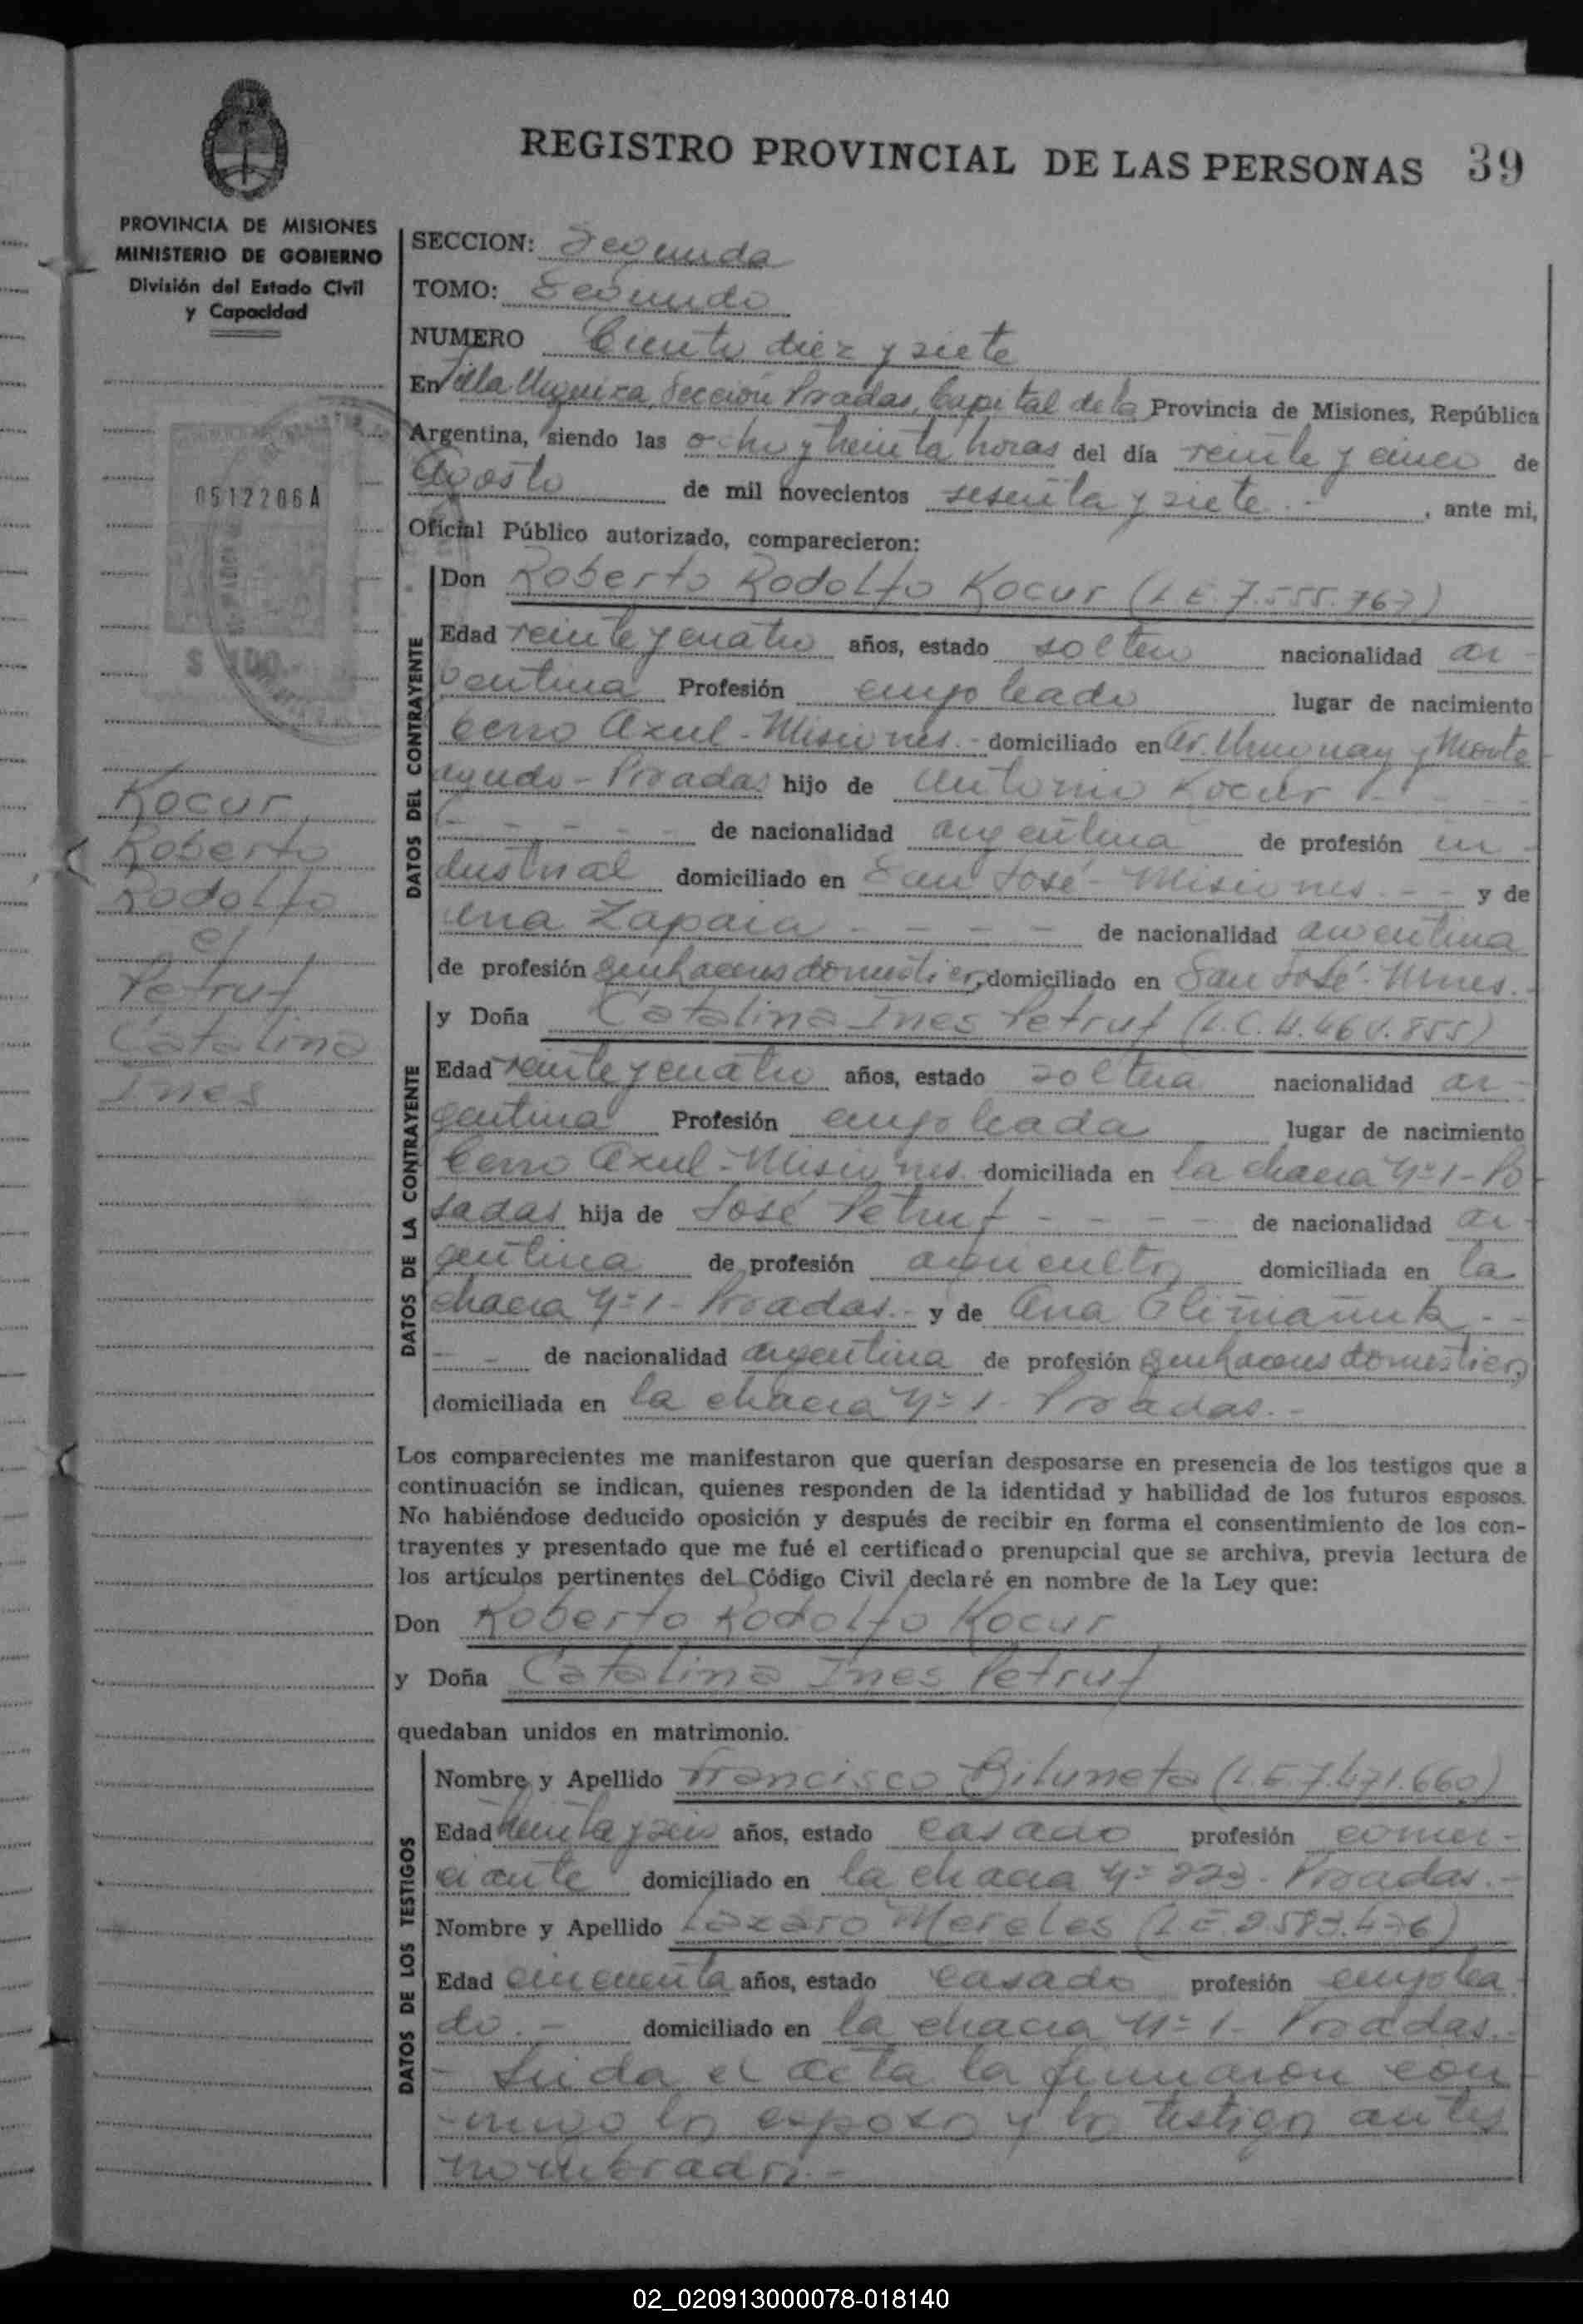 REGISTRO PROVINCIAL DE LAS PERSONAS 39
PROVINCIA DE MISIONES
MINISTERIO DE GOBIERNO
División del Estado Civil
y Capacidad
0512206A
$ 100.-
Kocur
Roberto
Rodolfo
c/
Petruf
Catalina
Ines
SECCION: Segunda
TOMO: Segundo
NUMERO Ciento diez y siete
En Villa Urquiza, Sección Posadas, Capital de la Provincia de Misiones, República
Argentina, siendo las ocho y treinta horas del día veinte y cinco de
Agosto de mil novecientos sesenta y siete , ante mi,
Oficial Público autorizado, comparecieron:
DATOS DEL CONTRAYENTE
Don Roberto Rodolfo Kocur (L.E. 7.555.767)
Edad veinte y cuatro años, estado soltero nacionalidad ar-
gentina Profesión empleado lugar de nacimiento
Cerro Azul - Misiones.- domiciliado en Av. Uruguay y Monte
agudo - Posadas hijo de Antonio Kocur - - - -
- - - - - de nacionalidad argentina de profesión in-
dustrial domiciliado en San José - Misiones - - y de
Ana Zapaia - - - - de nacionalidad argentina
de profesión quehaceres domésticos, domiciliado en San José - Mnes.-
DATOS DE LA CONTRAYENTE
y Doña Catalina Ines Petruf (L.C. 4.460.855)
Edad veinte y cuatro años, estado soltera nacionalidad ar-
gentina Profesión empleada lugar de nacimiento
Cerro Azul - Misiones. domiciliada en la chacra Nº 1 - Po
sadas hija de José Petruf - - - - de nacionalidad ar-
gentina de profesión agricultor domiciliada en la
chacra Nº 1 - Posadas.- y de Ana - -
- - de nacionalidad argentina de profesión quehaceres domésticos
domiciliada en la chacra Nº 1 - Posadas.-
Los comparecientes me manifestaron que querían desposarse en presencia de los testigos que a
continuación se indican, quienes responden de la identidad y habilidad de los futuros esposos.
No habiéndose deducido oposición y después de recibir en forma el consentimiento de los con-
trayentes y presentado que me fué el certificado prenupcial que se archiva, previa lectura de
los artículos pertinentes del Código Civil declaré en nombre de la Ley que:
Don Roberto Rodolfo Kocur
y Doña Catalina Ines Petruf
quedaban unidos en matrimonio.
DATOS DE LOS TESTIGOS
Nombre y Apellido Francisco (L.E. 7.471.660)
Edad treinta y seis años, estado casado profesión comer-
ciante domiciliado en la chacra Nº 223 - Posadas.-
Nombre y Apellido Lazaro Mereles (L.E. 2.583.476)
Edad cincuenta años, estado casado profesión emplea
do.- domiciliado en la chacra Nº 1 - Posadas.-
- Leída el acta la firmaron con
migo los esposos y los testigos antes
nombrados.-
02_020913000078-018140